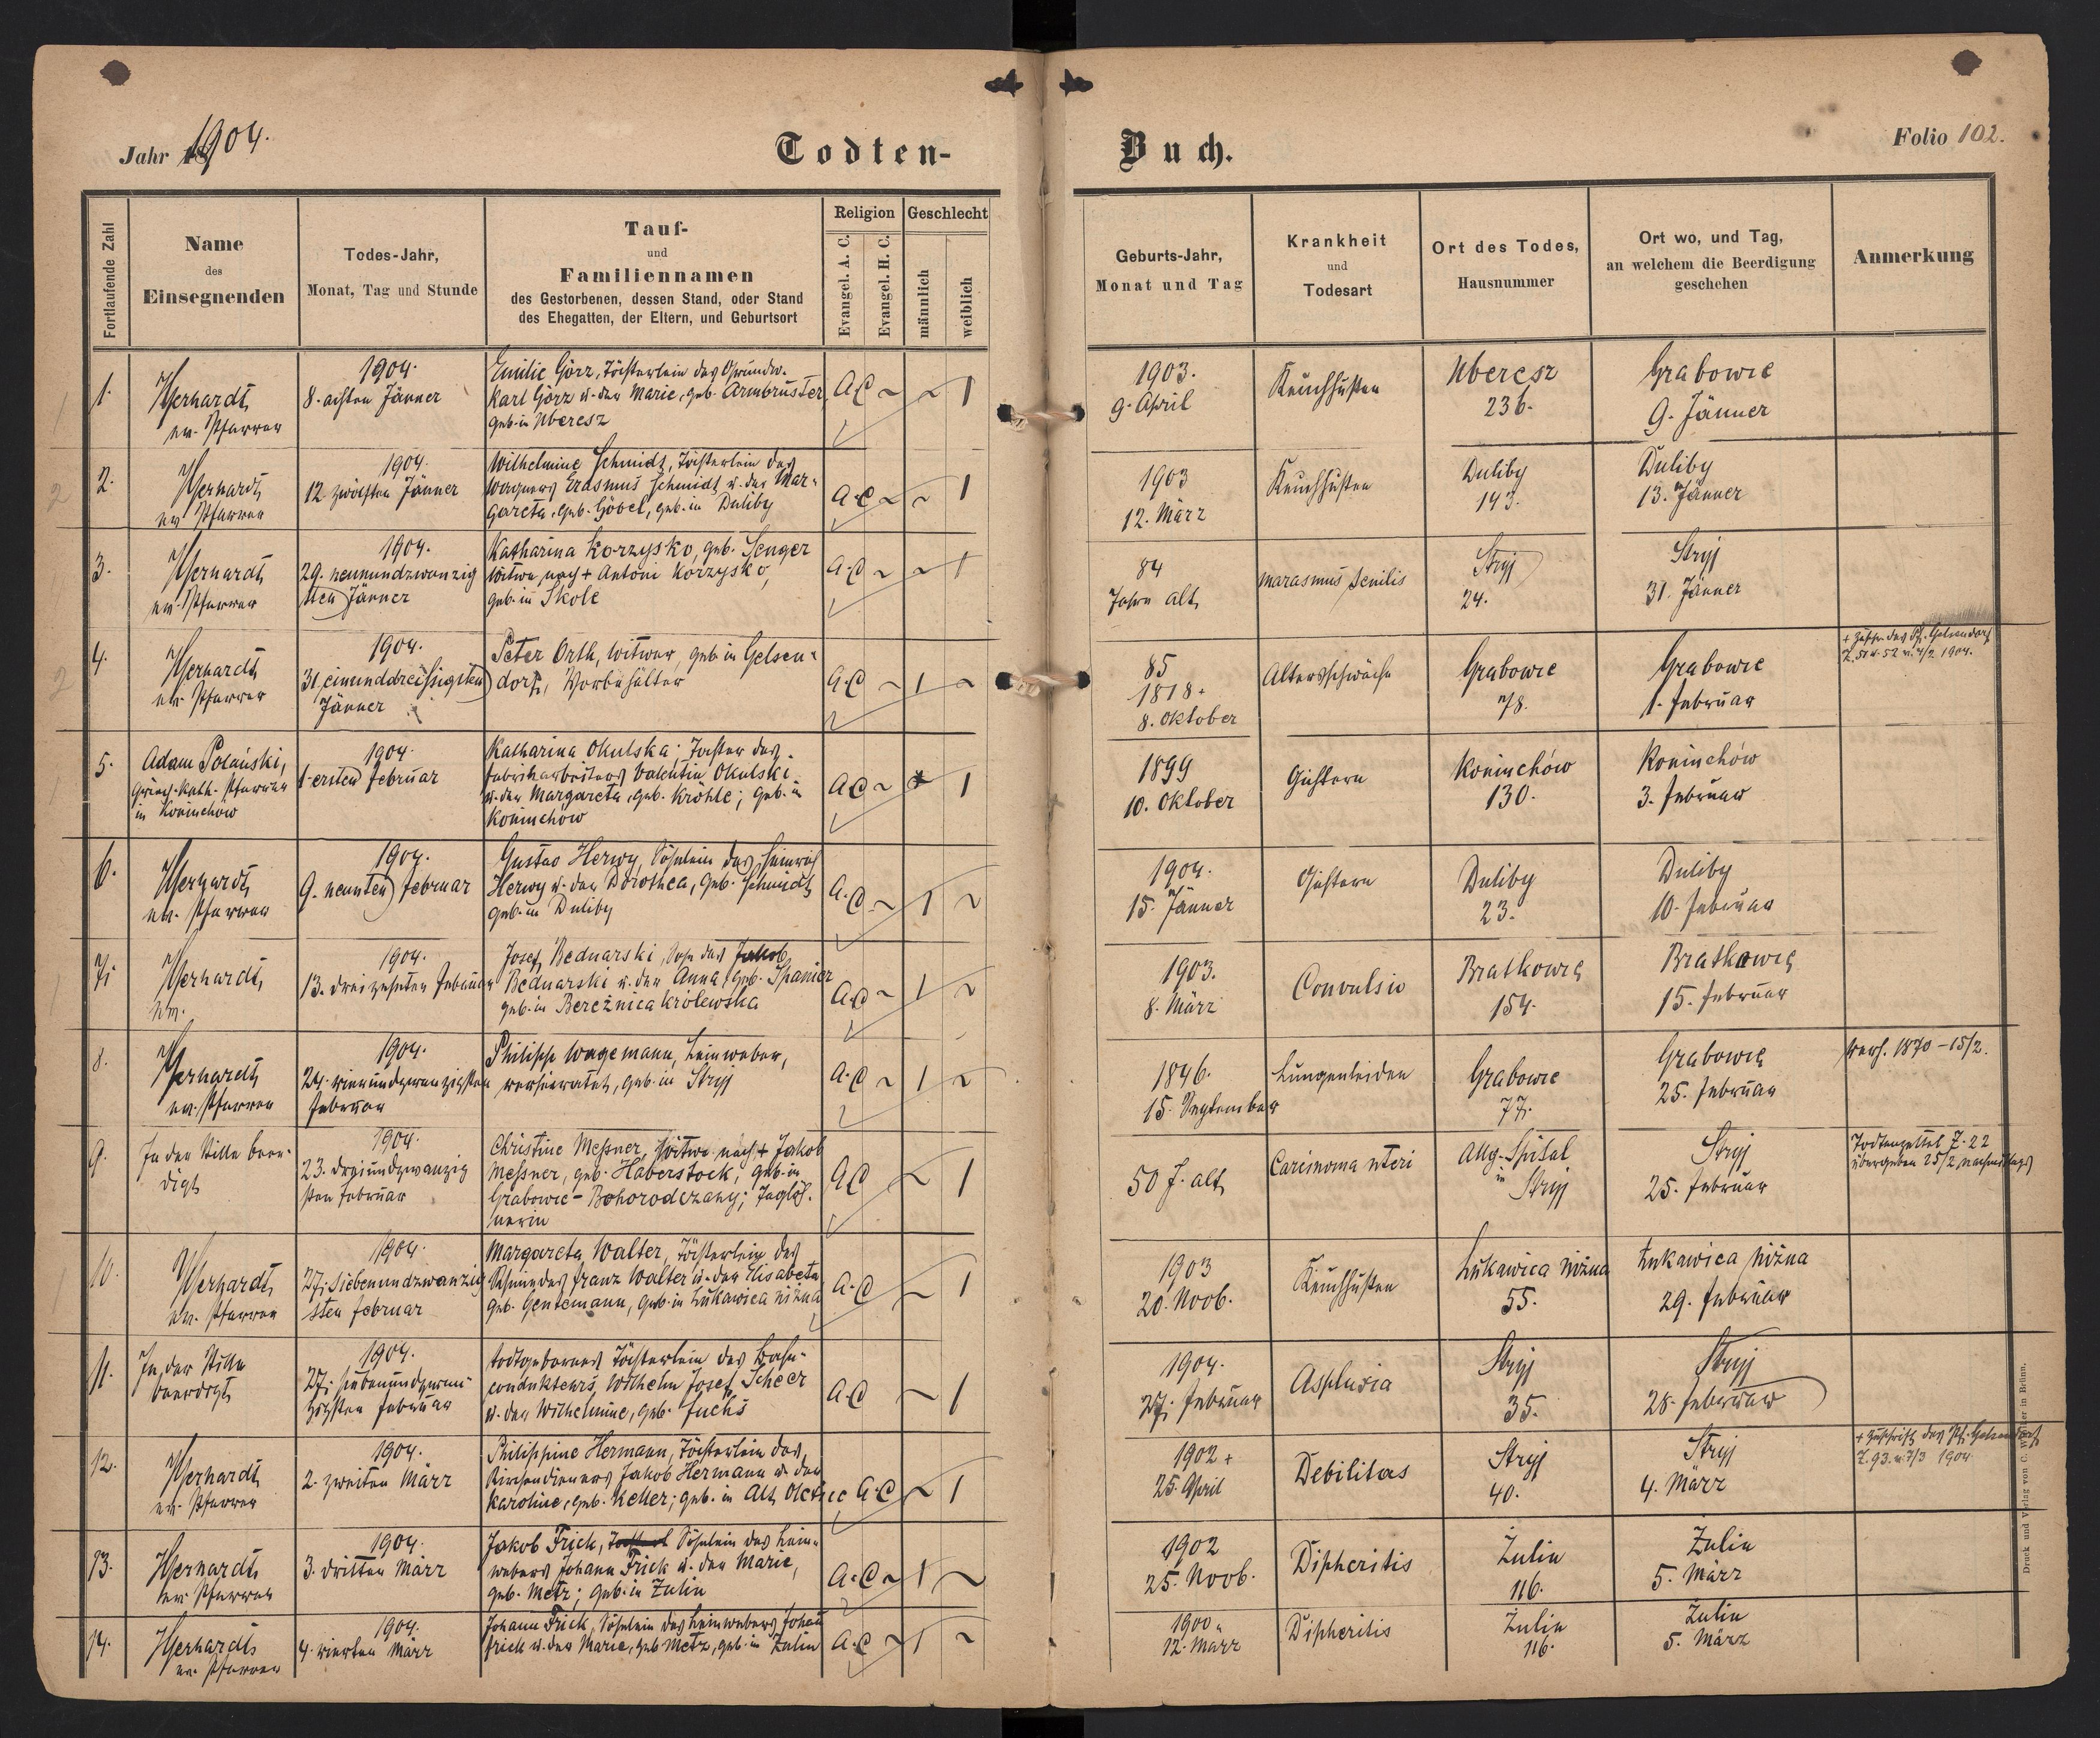 Jahr 1904.
Todten-
Buch.
Folio 102.
Fortlaufende Zahl
Name
des
Einsegnenden
Todes-Jahr,
Monat, Tag und Stunde
Tauf-
und
Familiennamen
des Gestorbenen, dessen Stand, oder Stand
des Ehegatten, der Eltern, und Geburtsort
Religion
Evangel. A. C.
Evangel. H. C.
Geschlecht
männlich
weiblich
Geburts-Jahr,
Monat und Tag
Krankheit
und
Todesart
Ort des Todes,
Hausnummer
Ort wo, und Tag,
an welchem die Beerdigung
geschehen
Anmerkung
1.
ev. Pfarrer
1904.
8. achten Jänner
Emilie Görz, Töchterlein des Grundw.
Karl Görz u. der Marie, geb. Armbruster,
geb. in Uberesz
A.C ~ ~ 1
1903.
9. April
Keuchhusten
Uberesz
236.
Grabowce
9. Jänner
2.
ev. Pfarrer
1904.
12. zwölften Jänner
Wilhelmine Schmidt, Töchterlein des
Wagners Erasmus Schmidt u. der Mar-
gareta, geb. Göbel, geb. in Duliby
A.C ~ ~ 1
1903
12. März
Keuchhusten
Duliby
143.
Duliby
13. Jänner
3.
ev. Pfarrer
1904.
29. neunundzwanzig
sten Jänner
Katharina Korzysko, geb. Senger
Witwe nach + Antoni Korzysko,
geb. in Skole
A.C ~ ~ 1
84
Jahre alt
marasmus senilis
Stryj
24.
Stryj
31. Jänner
4.
ev. Pfarrer
1904.
31. einunddreissigsten
Jänner
Peter Orth, Witwer, geb. in Gelsen-
dorf,
A.C ~ 1 ~
85
1818.
8. Oktober
Altersschwäche
Grabowce
78.
Grabowce
1. Februar
+ Zuschr. des Pf. Gelsendorf
Z. 51 u. 52 v. 4/2 1904.
5.
Adam Polański,
griech. kath. Pfarrer
in Koniuchów
1904.
1. ersten Februar
Katharina Okulska; Tochter des
Fabriksarbeiters Valentin Okulski
u. der Margareta, geb. Kröhle; geb. in
Koniuchów
A.C ~ 1
1899
10. Oktober
Gichtern
Koniuchów
130.
Koniuchów
3. Februar
6.
ev. Pfarrer
1904.
9. neunten Februar
Gustav Herwy, Söhnlein des Heinrich
Herwy u. der Dorothea, geb. Schmidt,
geb. in Duliby
A.C ~ 1 ~
1904.
15. Jänner
Gichtern
Duliby
23.
Duliby
10. Februar
7.
ev.
1904.
13. dreizehnten Februar
Josef Bednarski, Sohn des Jakob
Bednarski u. der Anna, geb. Spanier
geb. in Bereźnica królewska
A.C ~ 1 ~
1903.
8. März
Convulsio
Bratkowce
154.
Bratkowce
15. Februar
8.
ev. Pfarrer
1904.
24. vierundzwanzigsten
Februar
Philipp Wagemann, Leinweber,
verheiratet, geb. in Stryj
A.C ~ 1 ~
1846.
15. September
Lungenleiden
Grabowce
77.
Grabowce
25. Februar
1870 – 15/2.
9.
In der Stille beer-
digt
1904.
23. dreiundzwanzig
sten Februar
Christine Messner, Witwe nach + Jakob
Messner, geb. Haberstock, geb. in
Grabowce-Bohorodczany; Taglöh-
nerin
A.C ~ 1
50 J. alt
Carcinoma uteri
Allg. Spital
in Stryj
Stryj
25. Februar
Todtenzettel Z. 22
übergeben 25/2 nachmittags
10.
ev. Pfarrer
1904.
27. siebenundzwanzig
sten Februar
Margareta Walter, Töchterlein des
Schmiedes Franz Walter u. der Elisabeta
geb. Gentemann, geb. in Łukawica niżna
A.C ~ 1
1903
20. Novb.
Keuchhusten
Łukawica niżna
55.
Łukawica niżna
29. Februar
11.
In der Stille
beerdigt
1904.
27. siebenundzwan-
zigsten Februar
todtgeborenes Töchterlein des Bahn-
condukteurs Wilhelm Josef Scheer
u. der Wilhelmine, geb. Fuchs
A.C ~ 1
1904.
27. Februar
Asphyxia
Stryj
35.
Stryj
28. Februar
12.
ev. Pfarrer
1904.
2. zweiten März
Philippine Hermann, Töchterlein des
Kirchendieners Jakob Hermann u. der
Karoline, geb. Keller; geb. in Alt
A.C ~ 1
1902 +
25. April
Debilitas
Stryj
40.
Stryj
4. März
+ Zuschrift des Pf. Gelsendorf
Z. 93. v. 7/3 1904
13.
ev. Pfarrer
1904.
3. dritten März
Jakob Frick, Söhnlein des Lein-
webers Johann Frick u. der Marie,
geb. Metz; geb. in Zulin
A.C ~ 1 ~
1902
25. Novb.
Dipheritis
Zulin
116.
Zulin
5. März
14.
ev. Pfarrer
1904.
4. vierten März
Johann Frick, Söhnlein des Leinwebers Johann
Frick u. der Marie, geb. Metz, geb. in Zulin
A.C ~ 1 ~
1900.
12. März
Dipheritis
Zulin
116.
Zulin
5. März
Druck und Verlag von C. in Brünn.